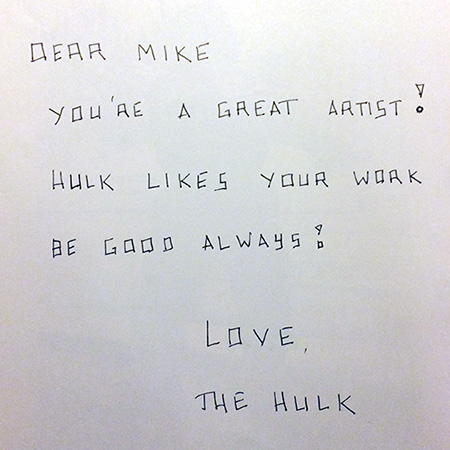 DEAR MIKE
YOU'RE A GREAT ARTIST!
HULK LIKES YOUR WORK
BE GOOD ALWAYS!
LOVE,
THE HULK